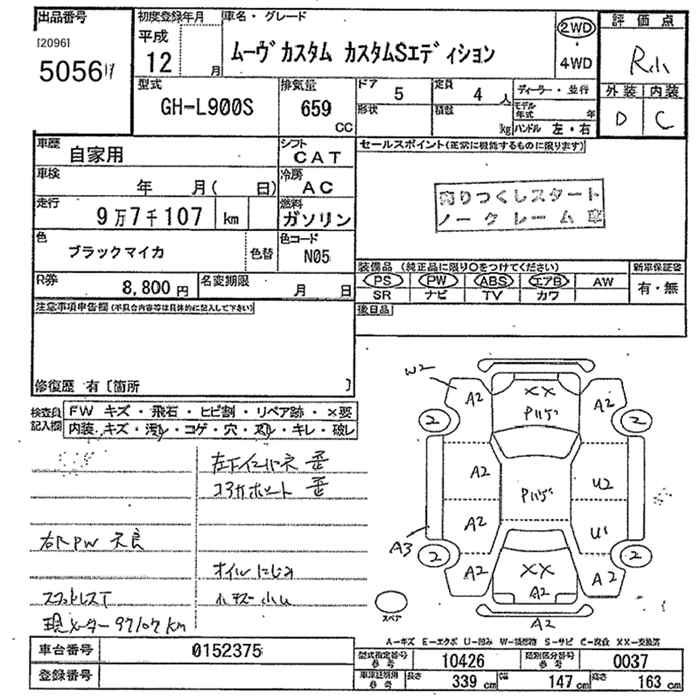 出品番号
[2096]
5056
初度登録年月
平成
12
月
車名・グレード
ムーヴカスタム カスタムSエディション
2WD
4WD
評価点
R
外装 内装
D C
型式
GH-L900S
排気量
659
CC
ドア
5
定員
4
人
形状
積載
kg
ディーラー・並行
モデル年式
年
ハンドル 左・右
車歴
自家用
シフト
CAT
車検
年 月( 日)
冷房
AC
走行
9万7千107 km
燃料
ガソリン
色
ブラックマイカ
色替
色コード
N05
R券
8,800円
名変期限
月 日
セールスポイント(正常に機能するものに限ります)
売りつくしスタート
ノークレーム車
装備品 (純正品に限り○をつけてください)
PS PW ABS エアB AW
SR ナビ TV カワ
新車保証書
有・無
後日品
注意事項申告欄(不具合内容等は具体的に記入して下さい)
修復歴 有〔箇所 〕
検査員記入欄
FW キズ・飛石・ヒビ割・リペア跡・×要
内装、キズ・汚レ・コゲ・穴・スレ・キレ・破レ
歪
コアサポート 歪
右 PW 不良
オイルにじみ
現メーター 97107 km
W2
A2
XX
Pハゲ
A2
2
2
A2
Pハゲ
U2
A2
U1
A3
2
2
A2
XX
A2
A2
スペア
A2
A-キズ E-エクボ U-凹み W-補修跡 S-サビ C-腐食 XX-交換済
車台番号
0152375
登録番号
型式指定番号
参考
10426
類別区分番号
参考
0037
車車証明用
参考
長さ
339 cm
幅
147 cm
高さ
163 cm